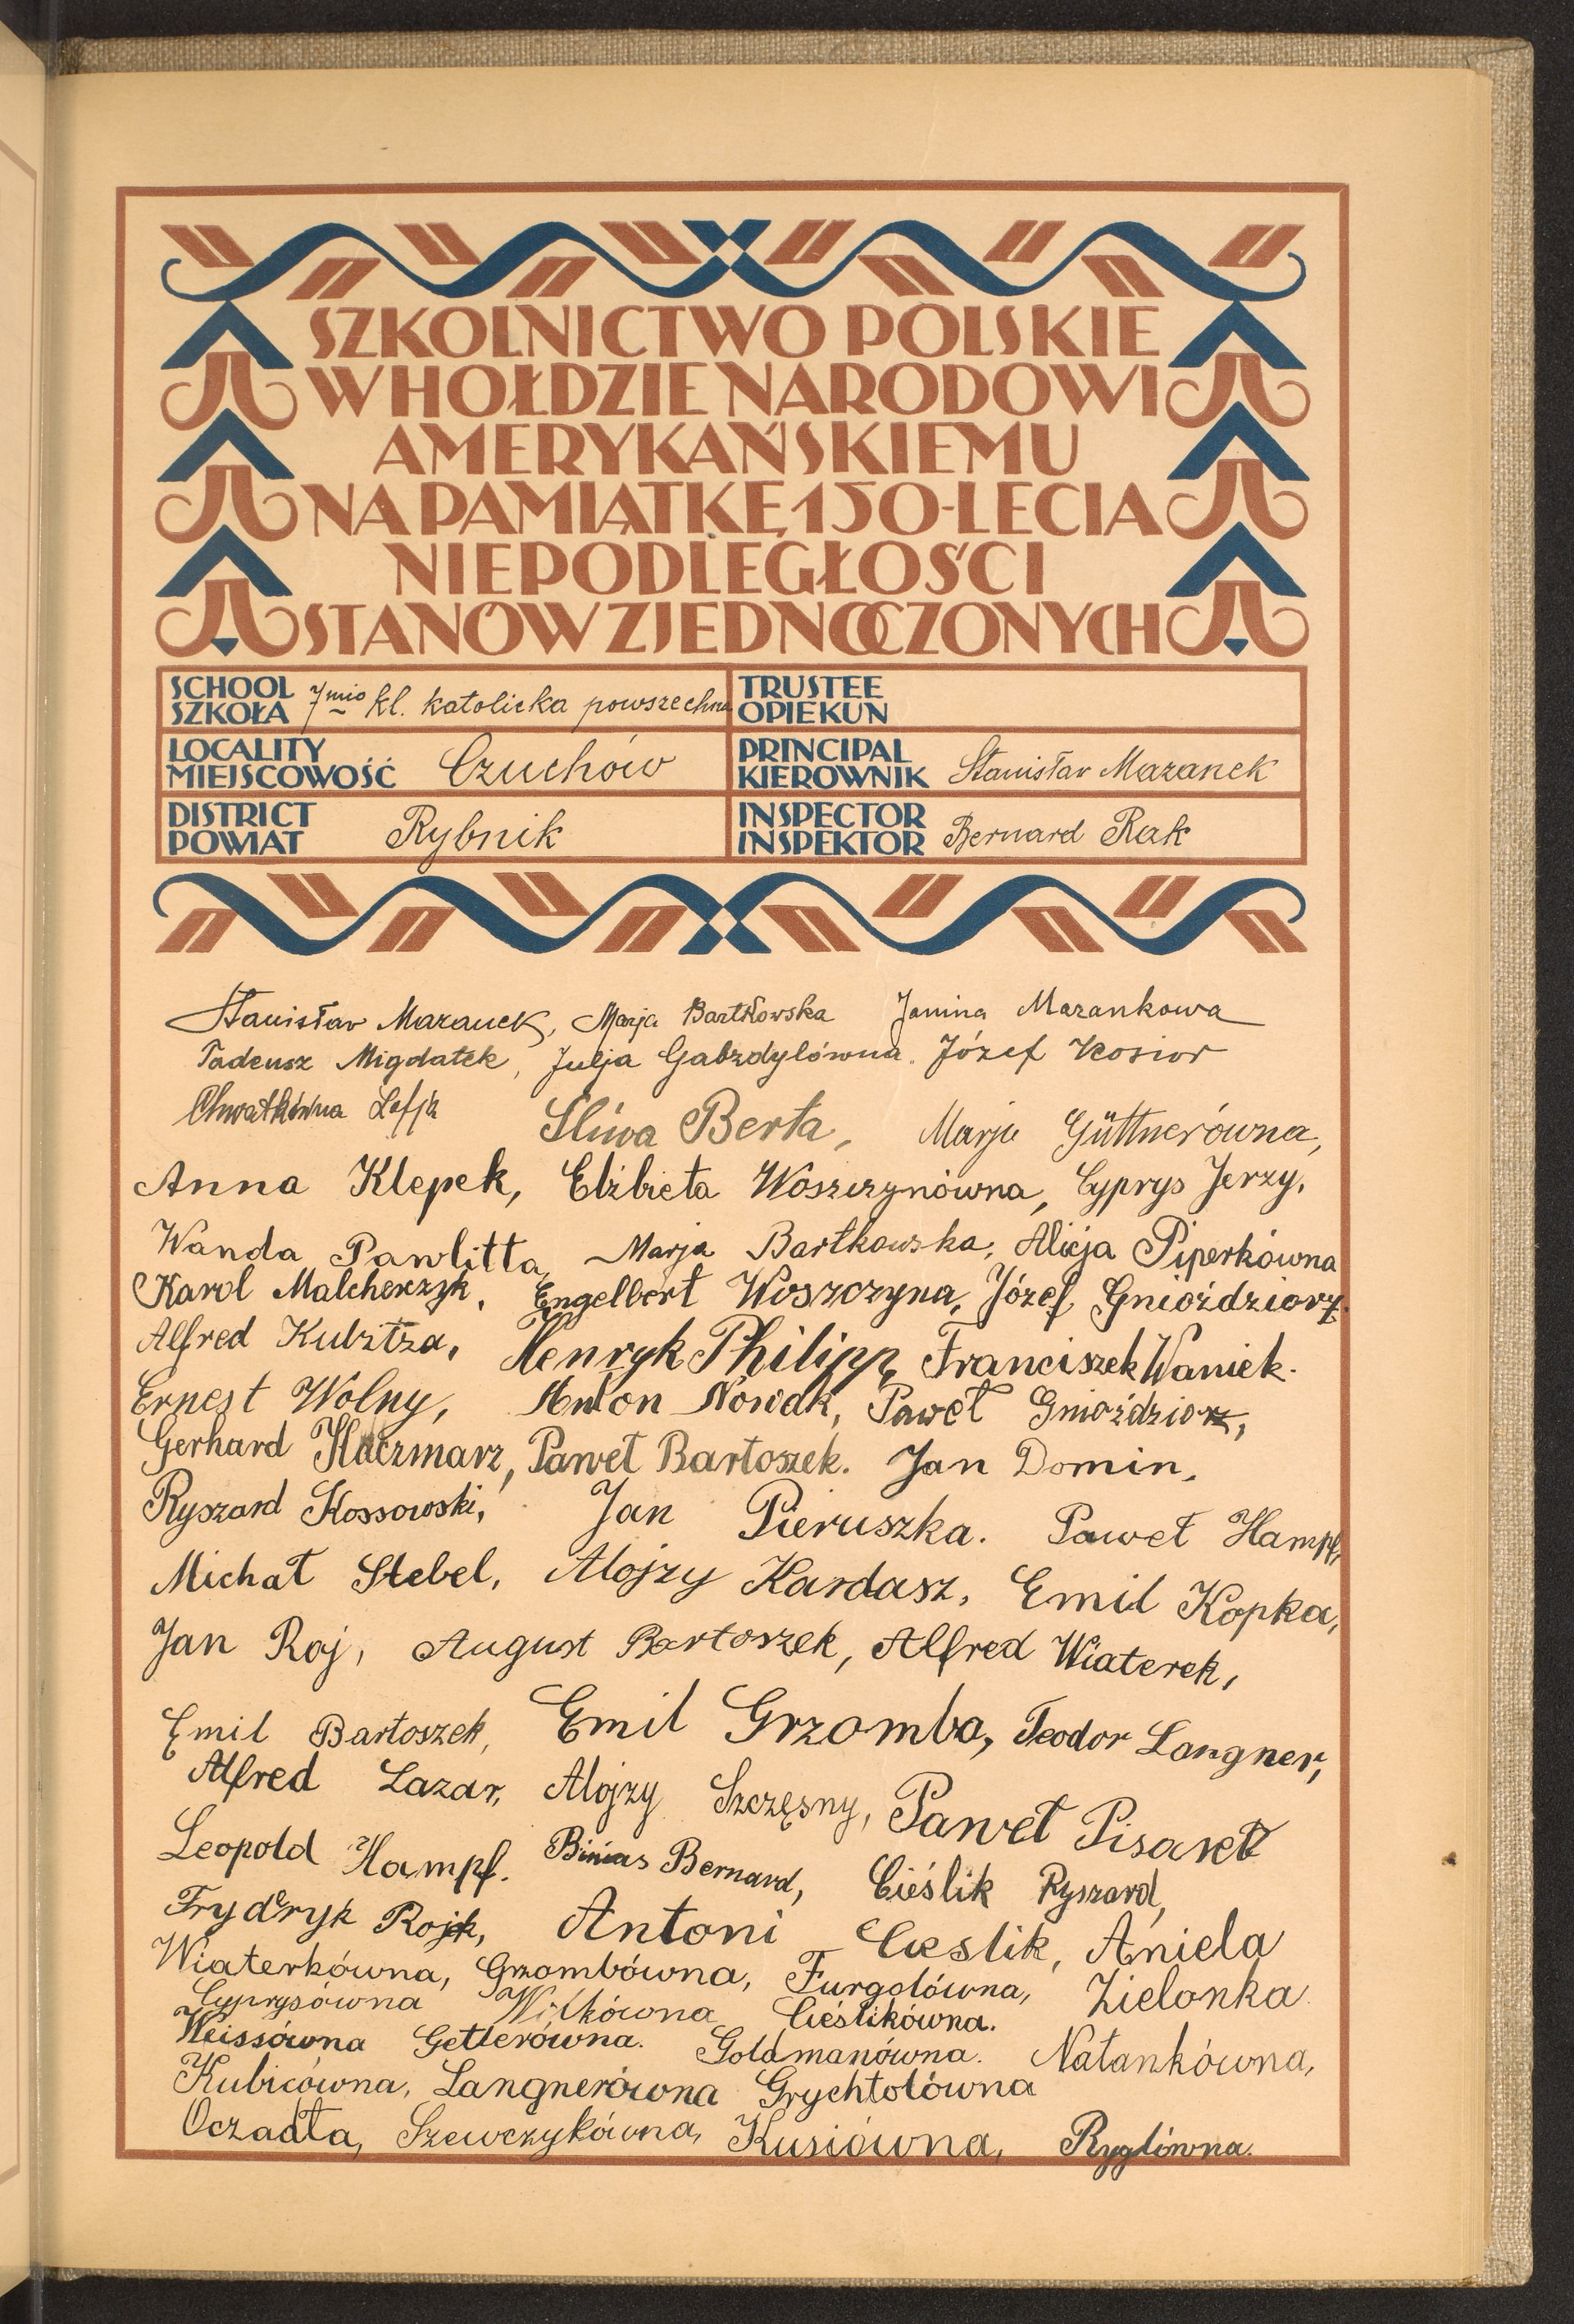 SZKOLNICTWO POLSKIE
W HOŁDZIE NARODOWI
AMERYKAŃSKIEMU
NA PAMIĄTKĘ 150-LECIA
NIEPODLEGŁOŚCI
STANÓW ZJEDNOCZONYCH
SCHOOL
SZKOŁA 7mio kl. katolicka powszechna
TRUSTEE
OPIEKUN
LOCALITY
MIEJSCOWOŚĆ Czuchów
PRINCIPAL
KIEROWNIK Stanisław Mazanek
DISTRICT
POWIAT Rybnik
INSPECTOR
INSPEKTOR Bernard Rak
Stanisław Mazanek, Marja Bartkowska Janina Mazankowa
Tadeusz Migdałek, Julja Gabzdylówna. Józef Kosior
Chwatkówna Śliwa Berta, Marja Güttnerówna,
Anna Klepek, Elżbieta Woszczynówna, Cyprys Jerzy,
Wanda Pawlitta, Marja Bartkowska, Alicja Piperkówna
Karol Malcherczyk, Engelbert Woszczyna, Józef Gnioździorz.
Alfred Kubitza, Henryk Philipp, Franciszek Waniek.
Ernest Wolny, Anton Nowak, Paweł Gnioździorz,
Gerhard Kaczmarz, Paweł Bartoszek. Jan Domin,
Ryszard Kossowski, Jan Pieruszka. Paweł Hampf,
Michał Stebel, Alojzy Kardasz, Emil Kopka,
Jan Roj, August Bartoszek, Alfred Wiaterek,
Emil Bartoszek, Emil Grzomba, Teodor Langner,
Alfred Lazar, Alojzy Szczęsny, Paweł Pisarek
Leopold Hampf. Binias Bernard, Cieślik Ryszard,
Fryderyk Rojek, Antoni Cieslik, Aniela
Wiaterkówna, Grzombówna, Furgolówna, Zielonka.
Cyprysówna Wilkówna Cieślikówna.
Weissówna Getlerówna. Goldmanówna. Natankówna,
Kubicówna, Langnerówna Grychtolówna
Oczadła, Szewczykówna, Kusiówna, Ryglówna.